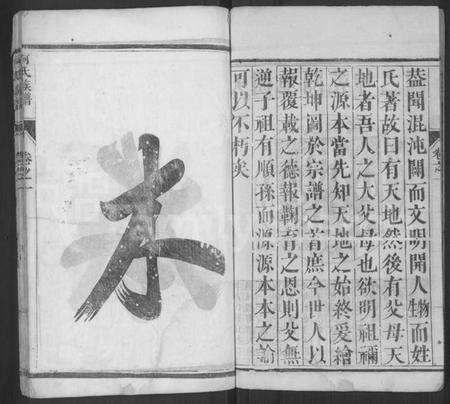 蓋聞混沌闢而文明開人物而姓
氏著故曰有天地然後有父母天
地者吾人之大父母也欲明祖禰
之源本當先知天地之始終爰繪
乾坤圖於宗譜之首庶今世人以
報覆載之德報鞠育之恩則父無
逆子祖有順孫而源源本本之論
可以不朽矣
卷之一
氏族譜
本